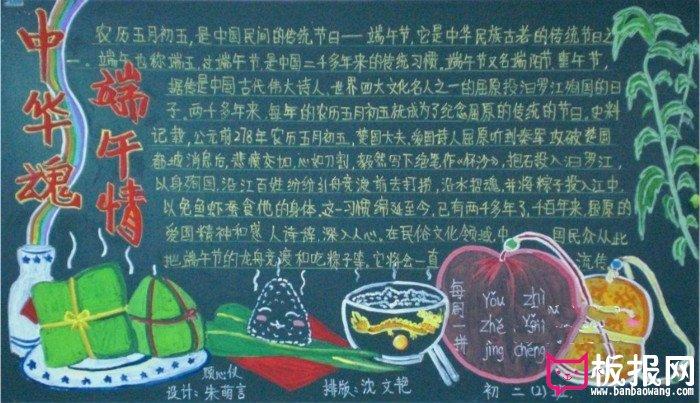 中华魂
端午情
农历五月初五,是中国民间的传统节日——端午节,它是中华民族古老的传统节日之
一。端午也称端五,过端午节,是中国二千多年来的传统习惯,端午节又名端阳节、重午节,
据传是中国古代伟大诗人、世界四大文化名人之一的屈原投汨罗江殉国的日
子,两千多年来,每年的农历五月初五就成为了纪念屈原的传统的节日。史料
记载,公元前278年农历五月初五,楚国大夫、爱国诗人屈原听到秦军攻破楚国
都城消息后,悲愤交加,心如刀割,毅然写下绝笔作《怀沙》,抱石投入汨罗江,
以身殉国。沿江百姓纷纷引舟竞渡前去打捞,沿水招魂,并将粽子投入江中,
以免鱼虾蚕食他的身体。这一习惯绵延至今,已有两千多年了,千百年来,屈原的
爱国精神和感人诗辞,深入人心。在民俗文化领域中 国民众从此
把端午节的龙舟竞渡和吃粽子等。它将会一直 流传
每周一拼
yǒu zhì
zhě
jìng chéng
顾心仪
设计:朱萌言
排版:沈文艳
初二(2)班
板报网
www.banbaowang.com